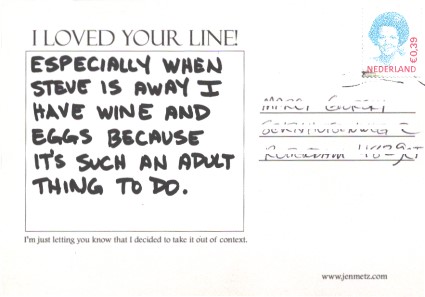 I LOVED YOUR LINE!
ESPECIALLY WHEN
STEVE IS AWAY I
HAVE WINE AND
EGGS BECAUSE
IT'S SUCH AN ADULT
THING TO DO.
I'm just letting you know that I decided to take it out of context.
www.jenmetz.com
NEDERLAND €0,39